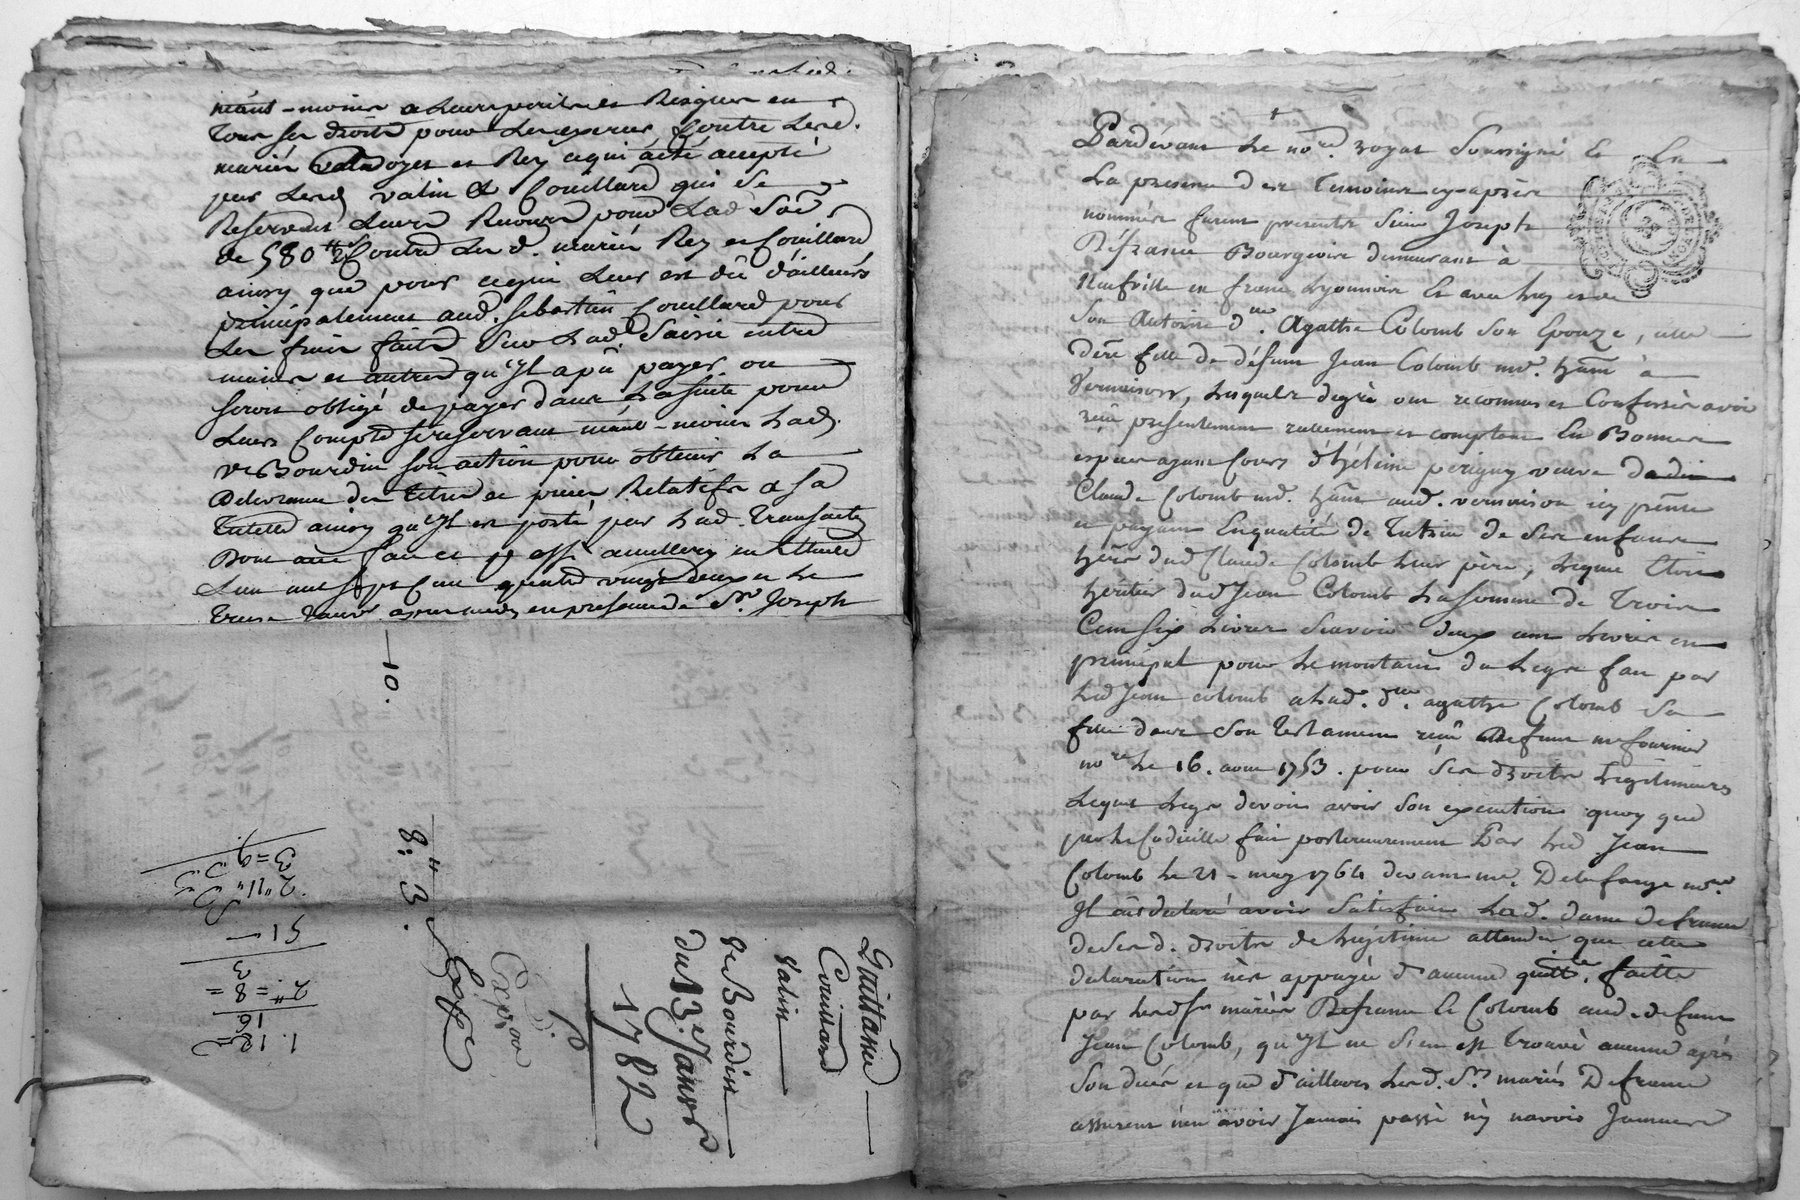 neant-moins a leurs perils et Risques en
tous ses droits pour les exercer Contre lesd.
mariés et Rey ce qui a été accepté
par lesd valin et Couillard qui se
Reservent leurs Recours pour lad. Soe
de 580 ll Contre lesd. mariés Rey et Couillard
ainsy que pour ce qui leur est dû d'ailleurs
principalement aud. sebastien Couillard pour
les frais faits sur lad. Saisie entre
mains et autres qu'Il a pû payer ou
seroit obligé de payer dans la suite pour
leurs Compte se reservant néant-moins lad.
ve Bourdin son action pour obtenir la
Delivrance des titres et pieces Relatifs a sa
Tutelle ainsy qu'Il est porté par lad. Transacton
Dont acte fait et passé a en l'Etude
L'an mil sept Cent quatre vingt deux et le
treize Janvr. apres midy en presence de Sr. Joseph
10.
8: " 3.
Quittance
Couillard
Valin
ve Bourdin
du 13e. Janvr
1782
p
Expée
3=9
2 " 11 "
51
3
2 " = 8 =
16
1. 12 =
Pardevant le nore. royal Soussigné Et En
La presence des Temoins cy-après
nommés furent presents Sieur Joseph
Défrance Bourgeois demeurant à
Neufville en franc Lyonnois Et avec luy et de
Son Autorité dme. Agathe Colomb son Epouze, elle
dere fille de défunt Jean Colomb md. hant à
Vernaison, lesquels de gré ont reconnus et Confessés avoir
reçu presentement reellement et comptant En Bonnes
espèces ayant Cours d'hélène perigny veuve dudit
Claude Colomb md. hant aud. vernaison icy pnte
et payant En qualité de Tutrice de Ses enfants
hers dud Claude Colomb leur père, lequel Etoit
héritier dud Jean Colomb La Somme de trois
Cent Six Livres Scavoir deux cent Livres en
principal pour le montant du Legs fait par
led Jean colomb a lad. dme. agathe Colomb sa
fille dans Son Testament reçu Defunt me fournier
nore le 16. aout 1753. pour Ses droits Legitimaires
Lequel Legs devoit avoir Son execution quoy que
par le Codicille fait posterieurement Par led Jean
Colomb le 21 - may 1764 devant me. Delafarge nore
Il ait declaré avoir Satisfait lad. dame defrance
de Sesd. droits de Legitime attendu que cette
declaration n'est appuyée d'aucune quittce. faitte
par lesd Srs mariés Defrance Et Colomb aud. defunt
Jean Colomb, qu'Il ne S'en est trouvé aucune après
Son decès et que d'ailleurs lesd. Srs mariés Defrance
assurent n'en avoir Jamais passé ny n'avoir Jamais